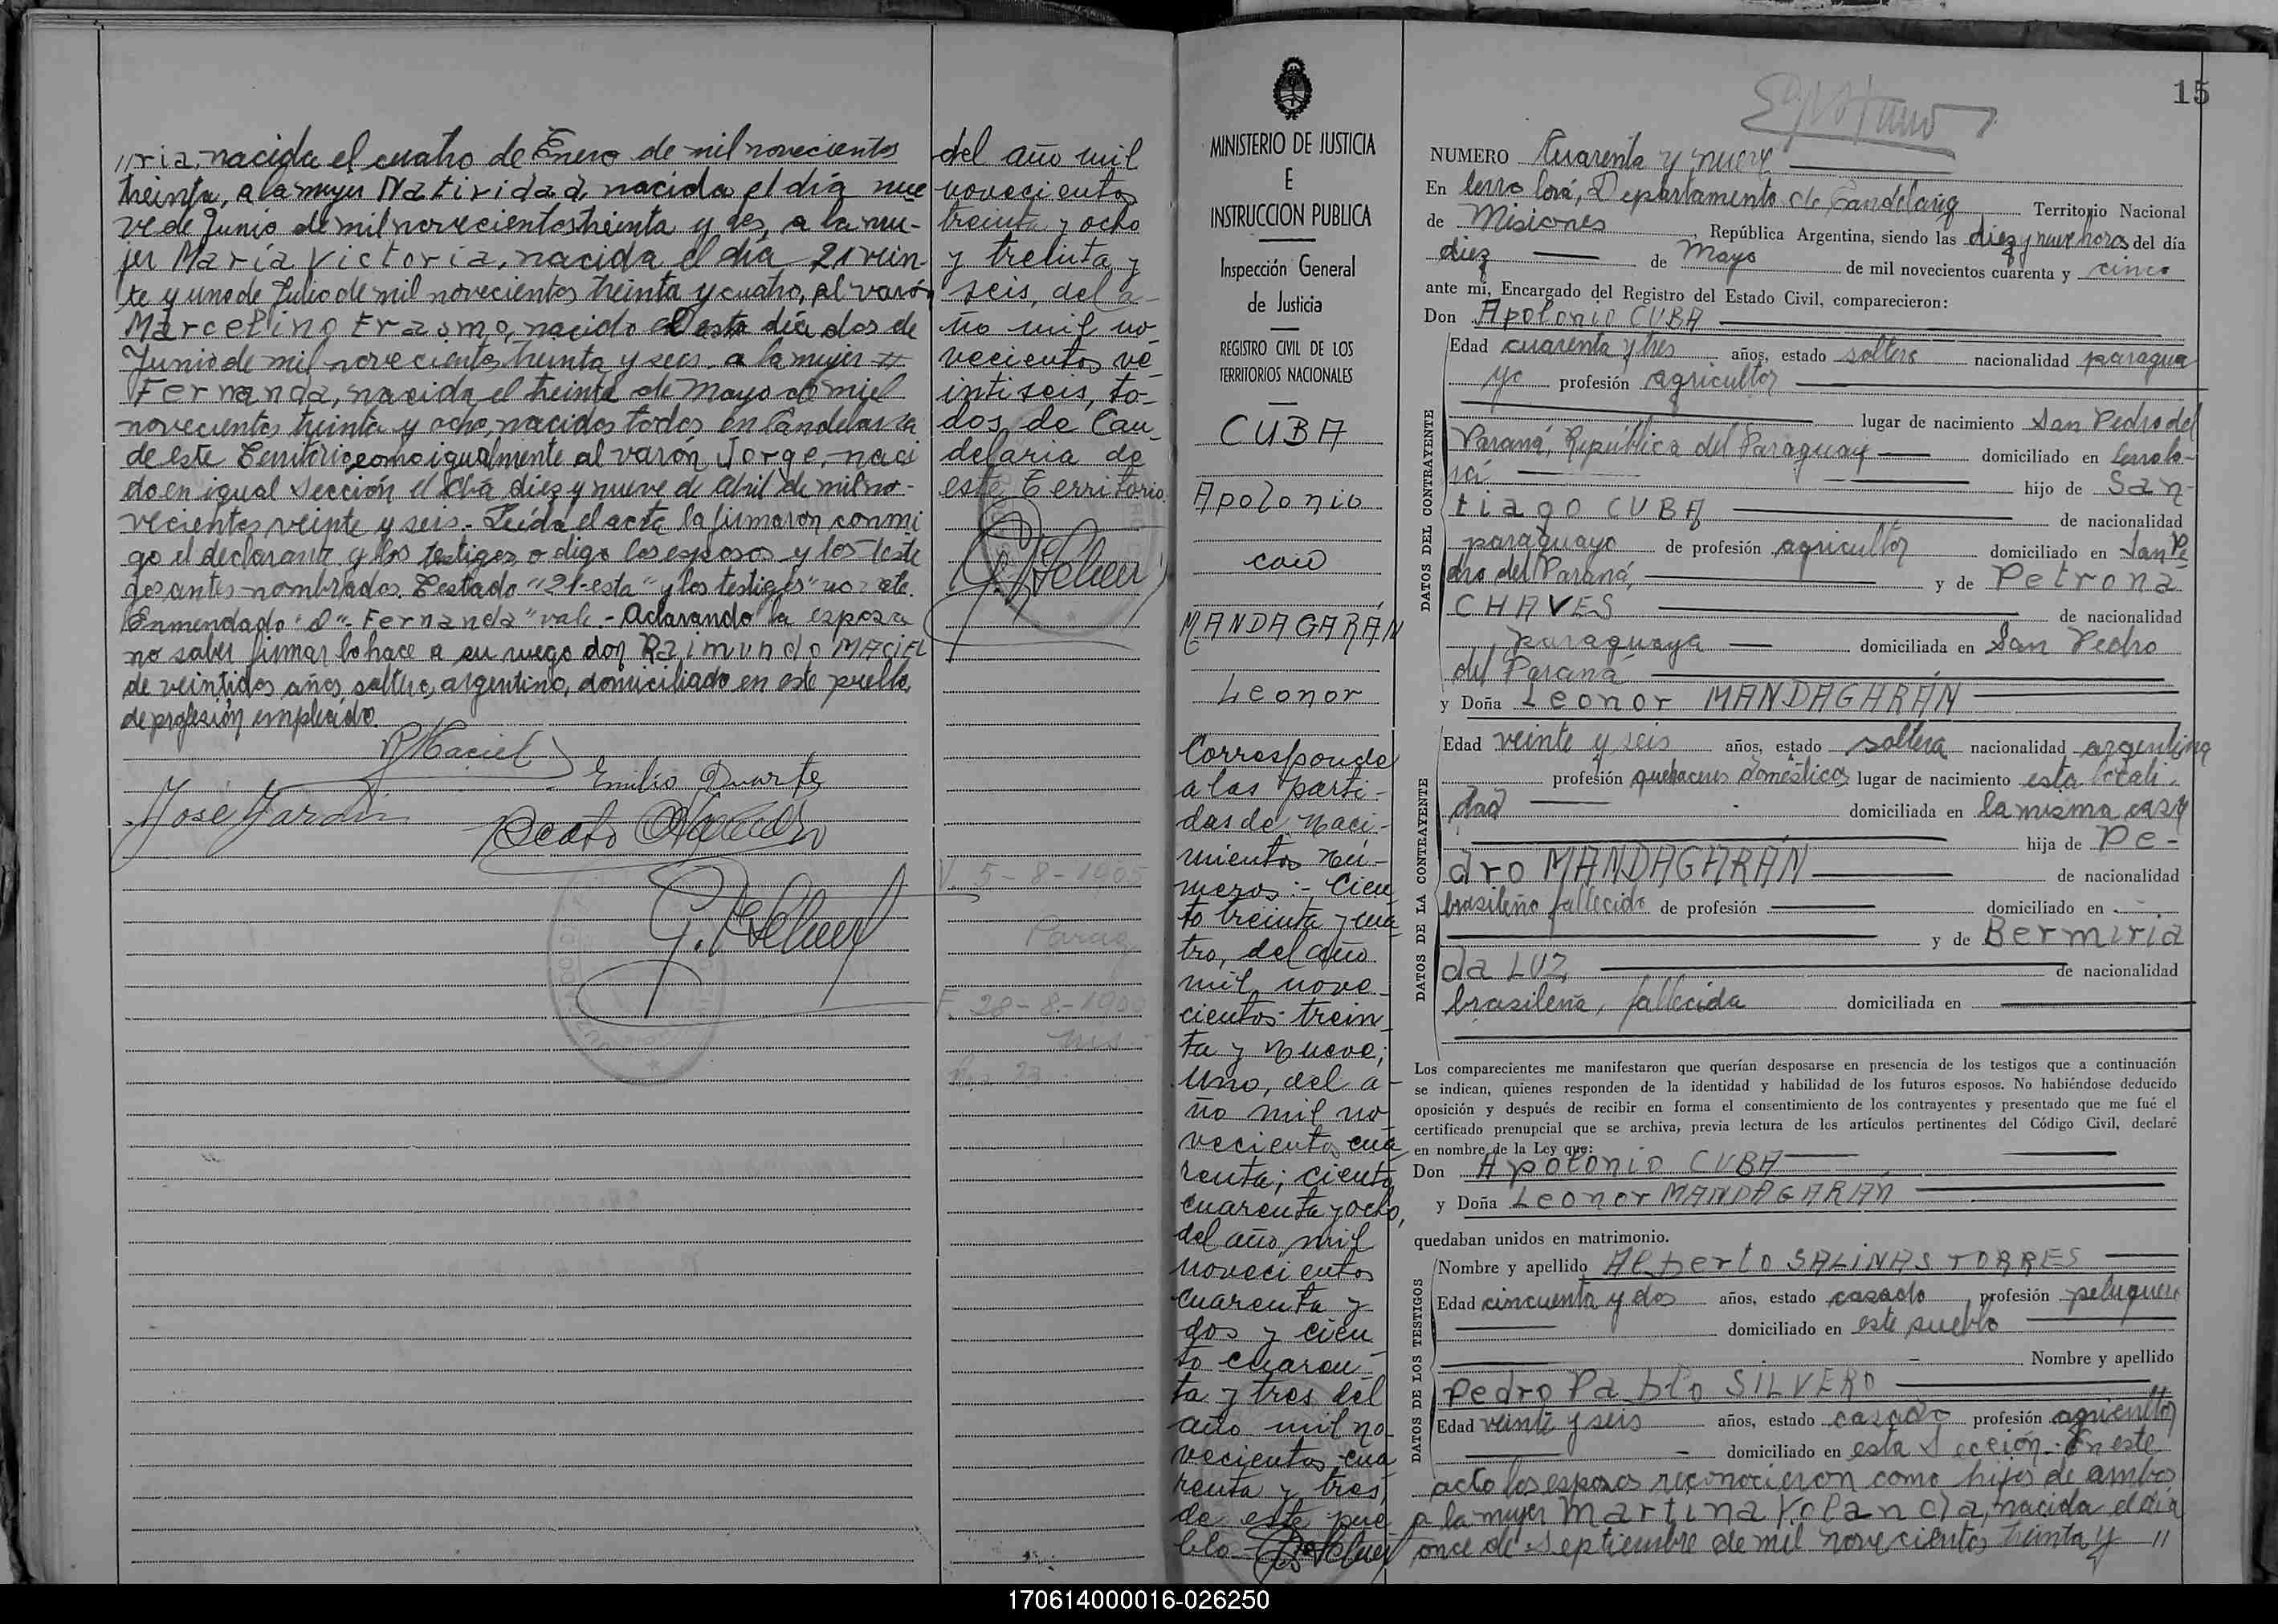 //ria, nacida el cuatro de Enero de mil novecientos
treinta, a la mujer Natividad, nacida el día nue
ve de Junio de mil novecientos treinta y dos, a la mu-
jer María Victoria, nacida el día 21 vein-
te y uno de Julio de mil novecientos treinta y cuatro, al varón
Marcelino Erasmo, nacido el esta día dos de
Junio de mil novecientos treinta y seis, a la mujer
Fernanda, nacida el treinta de Mayo de mil
novecientos treinta y ocho, nacidos todos en Candelaria
de este Territorio como igualmente al varón Jorge, naci
do en igual Sección el día diez y nueve de Abril de mil no-
vecientos veinte y seis.- Leída el acta la firmaron conmi
go el declarante y los testigos, o digo los esposos y los testi
gos antes nombrados. Testado "21-esta" y los testigos" no vale.
Enmendado "Fernanda" vale.- Aclarando la esposa
no saber firmar lo hace a su ruego don Raimundo MACIEL
de veintidos años, soltero, argentino, domiciliado en este pueblo,
de profesión empleado.
R Maciel
Emilio Duarte
José Jardin
del año mil
novecientos
treinta y ocho
y treinta y
seis, del a-
ño mil no
vecientos ve
intiseis, to-
dos de Can-
delaria de
este Territorio.
V. 5-8-1905
Parag
F. 28-8-1900
Mis.-
15
MINISTERIO DE JUSTICIA
E
INSTRUCCION PUBLICA
Inspección General
de Justicia
REGISTRO CIVIL DE LOS
TERRITORIOS NACIONALES
CUBA
Apolonio
con
MANDAGARÁN
Leonor
Corresponde
a las parti-
das de naci-
mientos nú-
meros:- Cien
to treinta y cua
tro, del año
mil nove-
cientos trein
ta y nueve;
Uno, del a-
ño mil no
vecientos cua
renta; ciento
cuarenta y ocho,
del año mil
novecientos
cuarenta y
dos y cien
to cuaren-
ta y tres del
año mil no-
vecientos cua
renta y tres,
de este pue
blo.-
NUMERO Cuarenta y nueve
En Cerro Corá, Departamento de Candelaria Territorio Nacional
de Misiones, República Argentina, siendo las diez y nueve horas del día
diez de Mayo de mil novecientos cuarenta y cinco
ante mí, Encargado del Registro del Estado Civil, comparecieron:
Don Apolonio CUBA
DATOS DEL CONTRAYENTE
Edad cuarenta y tres años, estado soltero nacionalidad paragua
yo profesión agricultor
lugar de nacimiento San Pedro del
Paraná, República del Paraguay domiciliado en Cerro Co-
rá hijo de San-
tiago CUBA de nacionalidad
paraguayo de profesión agricultor domiciliado en San Pe
dro del Paraná, y de Petrona
CHAVES de nacionalidad
paraguaya domiciliada en San Pedro
del Paraná
y Doña Leonor MANDAGARÁN
DATOS DE LA CONTRAYENTE
Edad veinte y seis años, estado soltera nacionalidad argentina
profesión quehaceres domésticos lugar de nacimiento esta locali-
dad domiciliada en la misma casa
hija de Pe-
dro MANDAGARÁN de nacionalidad
brasileño fallecido de profesión domiciliado en
y de Bermiria
da LUZ, de nacionalidad
brasileña, fallecida domiciliada en
Los comparecientes me manifestaron que querían desposarse en presencia de los testigos que a continuación
se indican, quienes responden de la identidad y habilidad de los futuros esposos. No habiéndose deducido
oposición y después de recibir en forma el consentimiento de los contrayentes y presentado que me fué el
certificado prenupcial que se archiva, previa lectura de los artículos pertinentes del Código Civil, declaré
en nombre de la Ley que:
Don Apolonio CUBA
y Doña Leonor MANDAGARÁN
quedaban unidos en matrimonio.
DATOS DE LOS TESTIGOS
Nombre y apellido Alberto SALINAS TORRES
Edad cincuenta y dos años, estado casado, profesión peluquero
domiciliado en este pueblo
Nombre y apellido
Pedro Pablo SILVERO
Edad veinte y seis años, estado casado profesión agricultor
domiciliado en esta Sección.- En este
acto los esposos reconocieron como hijos de ambos
a la mujer Martina Yolanda, nacida el día
once de Septiembre de mil novecientos treinta y //
170614000016-026250